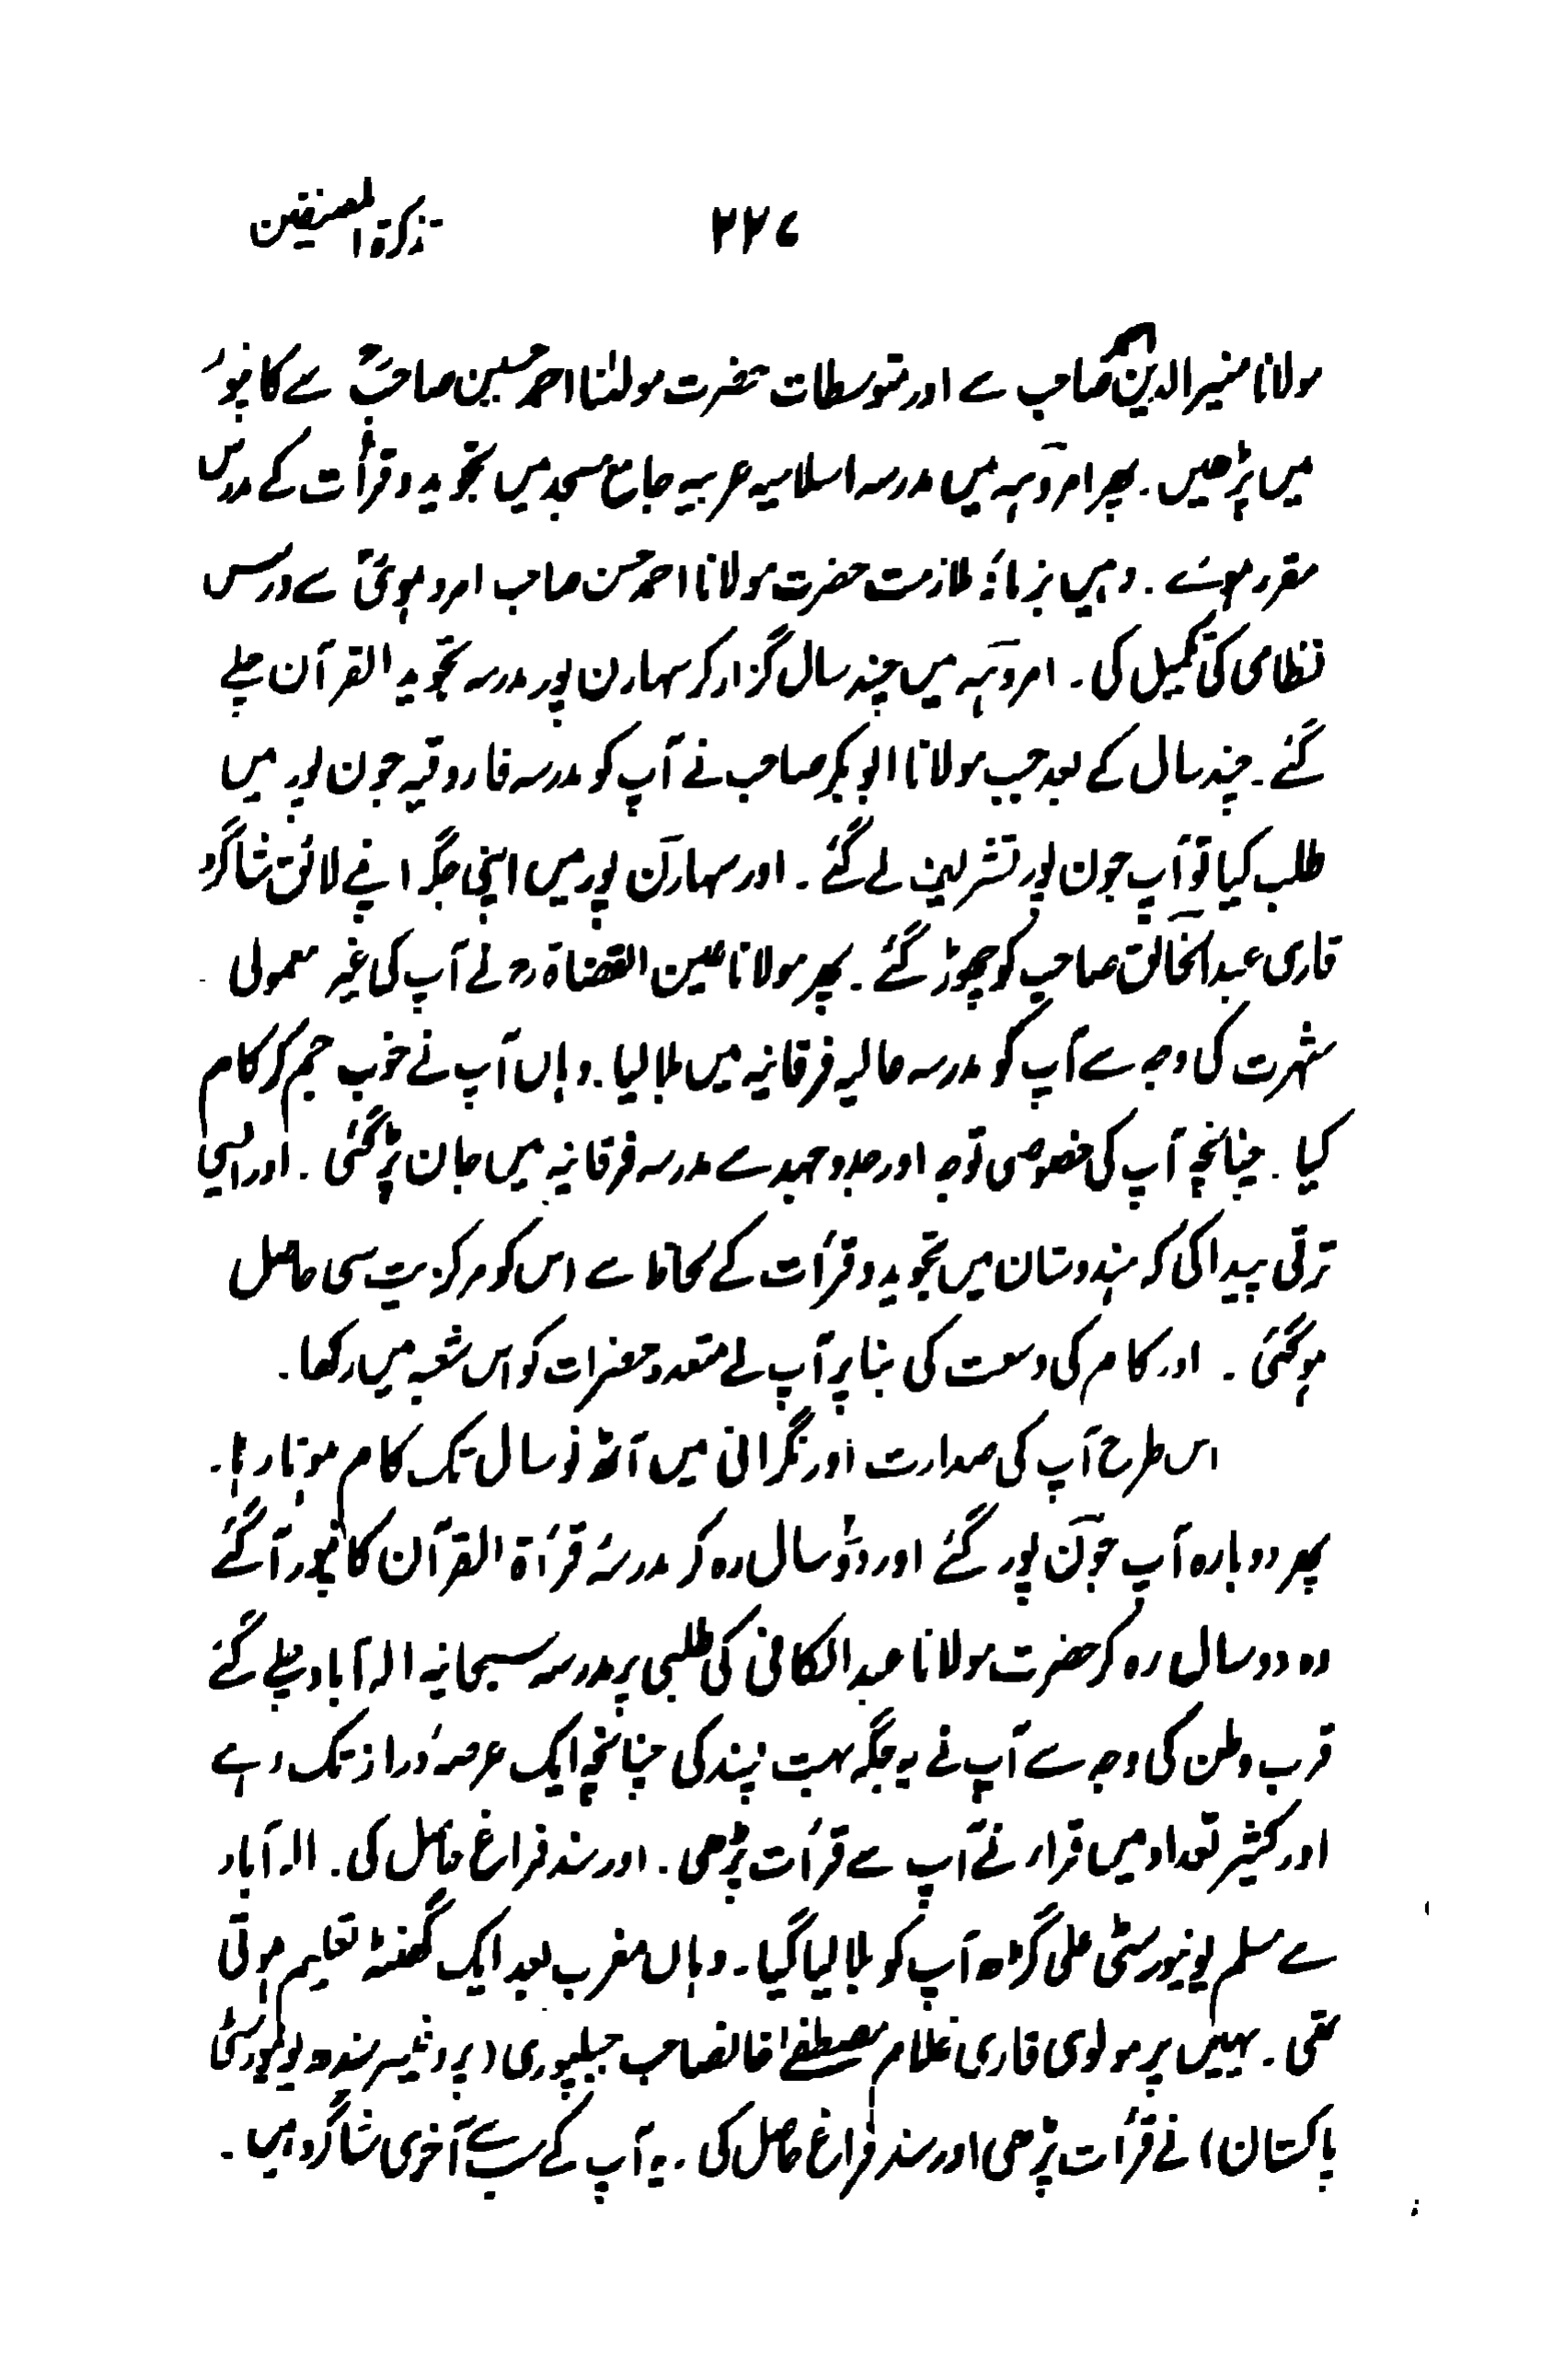 تذکرۃ المصنفین ۲۲۷
مولانا منیر الدین صاحب سے اور متوسطات حضرت مولٰنا احمد حسین صاحبؒ سے کانپور
میں پڑھیں۔ پھر امروہہ میں مدرسہ اسلامیہ عربیہ جامع مسجد میں تجوید و قرأت کے مدرس
مقرر ہوئے۔ وہیں بزمانۂ ملازمت حضرت مولانا احمد حسن صاحب امروہویؒ سے درس
نظامی کی تکمیل کی۔ امروہہ میں چند سال گزار کر سہارن پور مدرسہ تجوید القرآن چلے
گئے۔ چند سال کے بعد جب مولانا ابوبکر صاحب نے آپ کو مدرسہ فاروقیہ جون پور میں
طلب کیا تو آپ جون پور تشریف لے گئے۔ اور سہارن پور میں اپنی جگہ اپنے لائق شاگرد
قاری عبدالخالق صاحب کو چھوڑ گئے۔ پھر مولانا عین القضاۃ رہ نے آپ کی غیر معمولی
شہرت کی وجہ سے آپ کو مدرسہ عالیہ فرقانیہ میں بلا لیا۔ وہاں آپ نے خوب جم کر کام
کیا۔ چنانچہ آپ کی خصوصی توجہ اور جدوجہد سے مدرسہ فرقانیہ میں جان پڑ گئی۔ اور ایسی
ترقی پیدا کی کہ ہندوستان میں تجوید و قرأت کے لحاظ سے اس کو مرکزیت سی حاصل
ہوگئی۔ اور کام کی وسعت کی بنا پر آپ نے متعدد حضرات کو اس شعبہ میں رکھا۔
اس طرح آپ کی صدارت اور نگرانی میں آٹھ نو سال تک کام ہوتا رہا۔
پھر دوبارہ آپ جون پور گئے اور دو سال رہ کر مدرسۂ قرأۃ القرآن کانپور آگئے
وہ دو سال رہ کر حضرت مولانا عبدالکافی کی طلبی پر مدرسہ سبحانیہ الہ آباد چلے گئے
قرب وطن کی وجہ سے آپ نے یہ جگہ بہت پسند کی چنانچہ ایک عرصۂ دراز تک رہے
اور کثیر تعداد میں قراء نے آپ سے قرأت پڑھی۔ اور سند فراغ حاصل کی۔ الہ آباد
سے مسلم یونیورسٹی علی گڑھ آپ کو بلا لیا گیا۔ وہاں مغرب بعد ایک گھنٹہ تعلیم ہوتی
تھی۔ یہیں پر مولوی قاری غلام مصطفےٰ خانصاحب جبلپوری (پروفیسر سندھ یونیورسٹی
پاکستان) نے قرأت پڑھی اور سند فراغ حاصل کی۔ یہ آپ کے سب سے آخری شاگرد ہیں۔